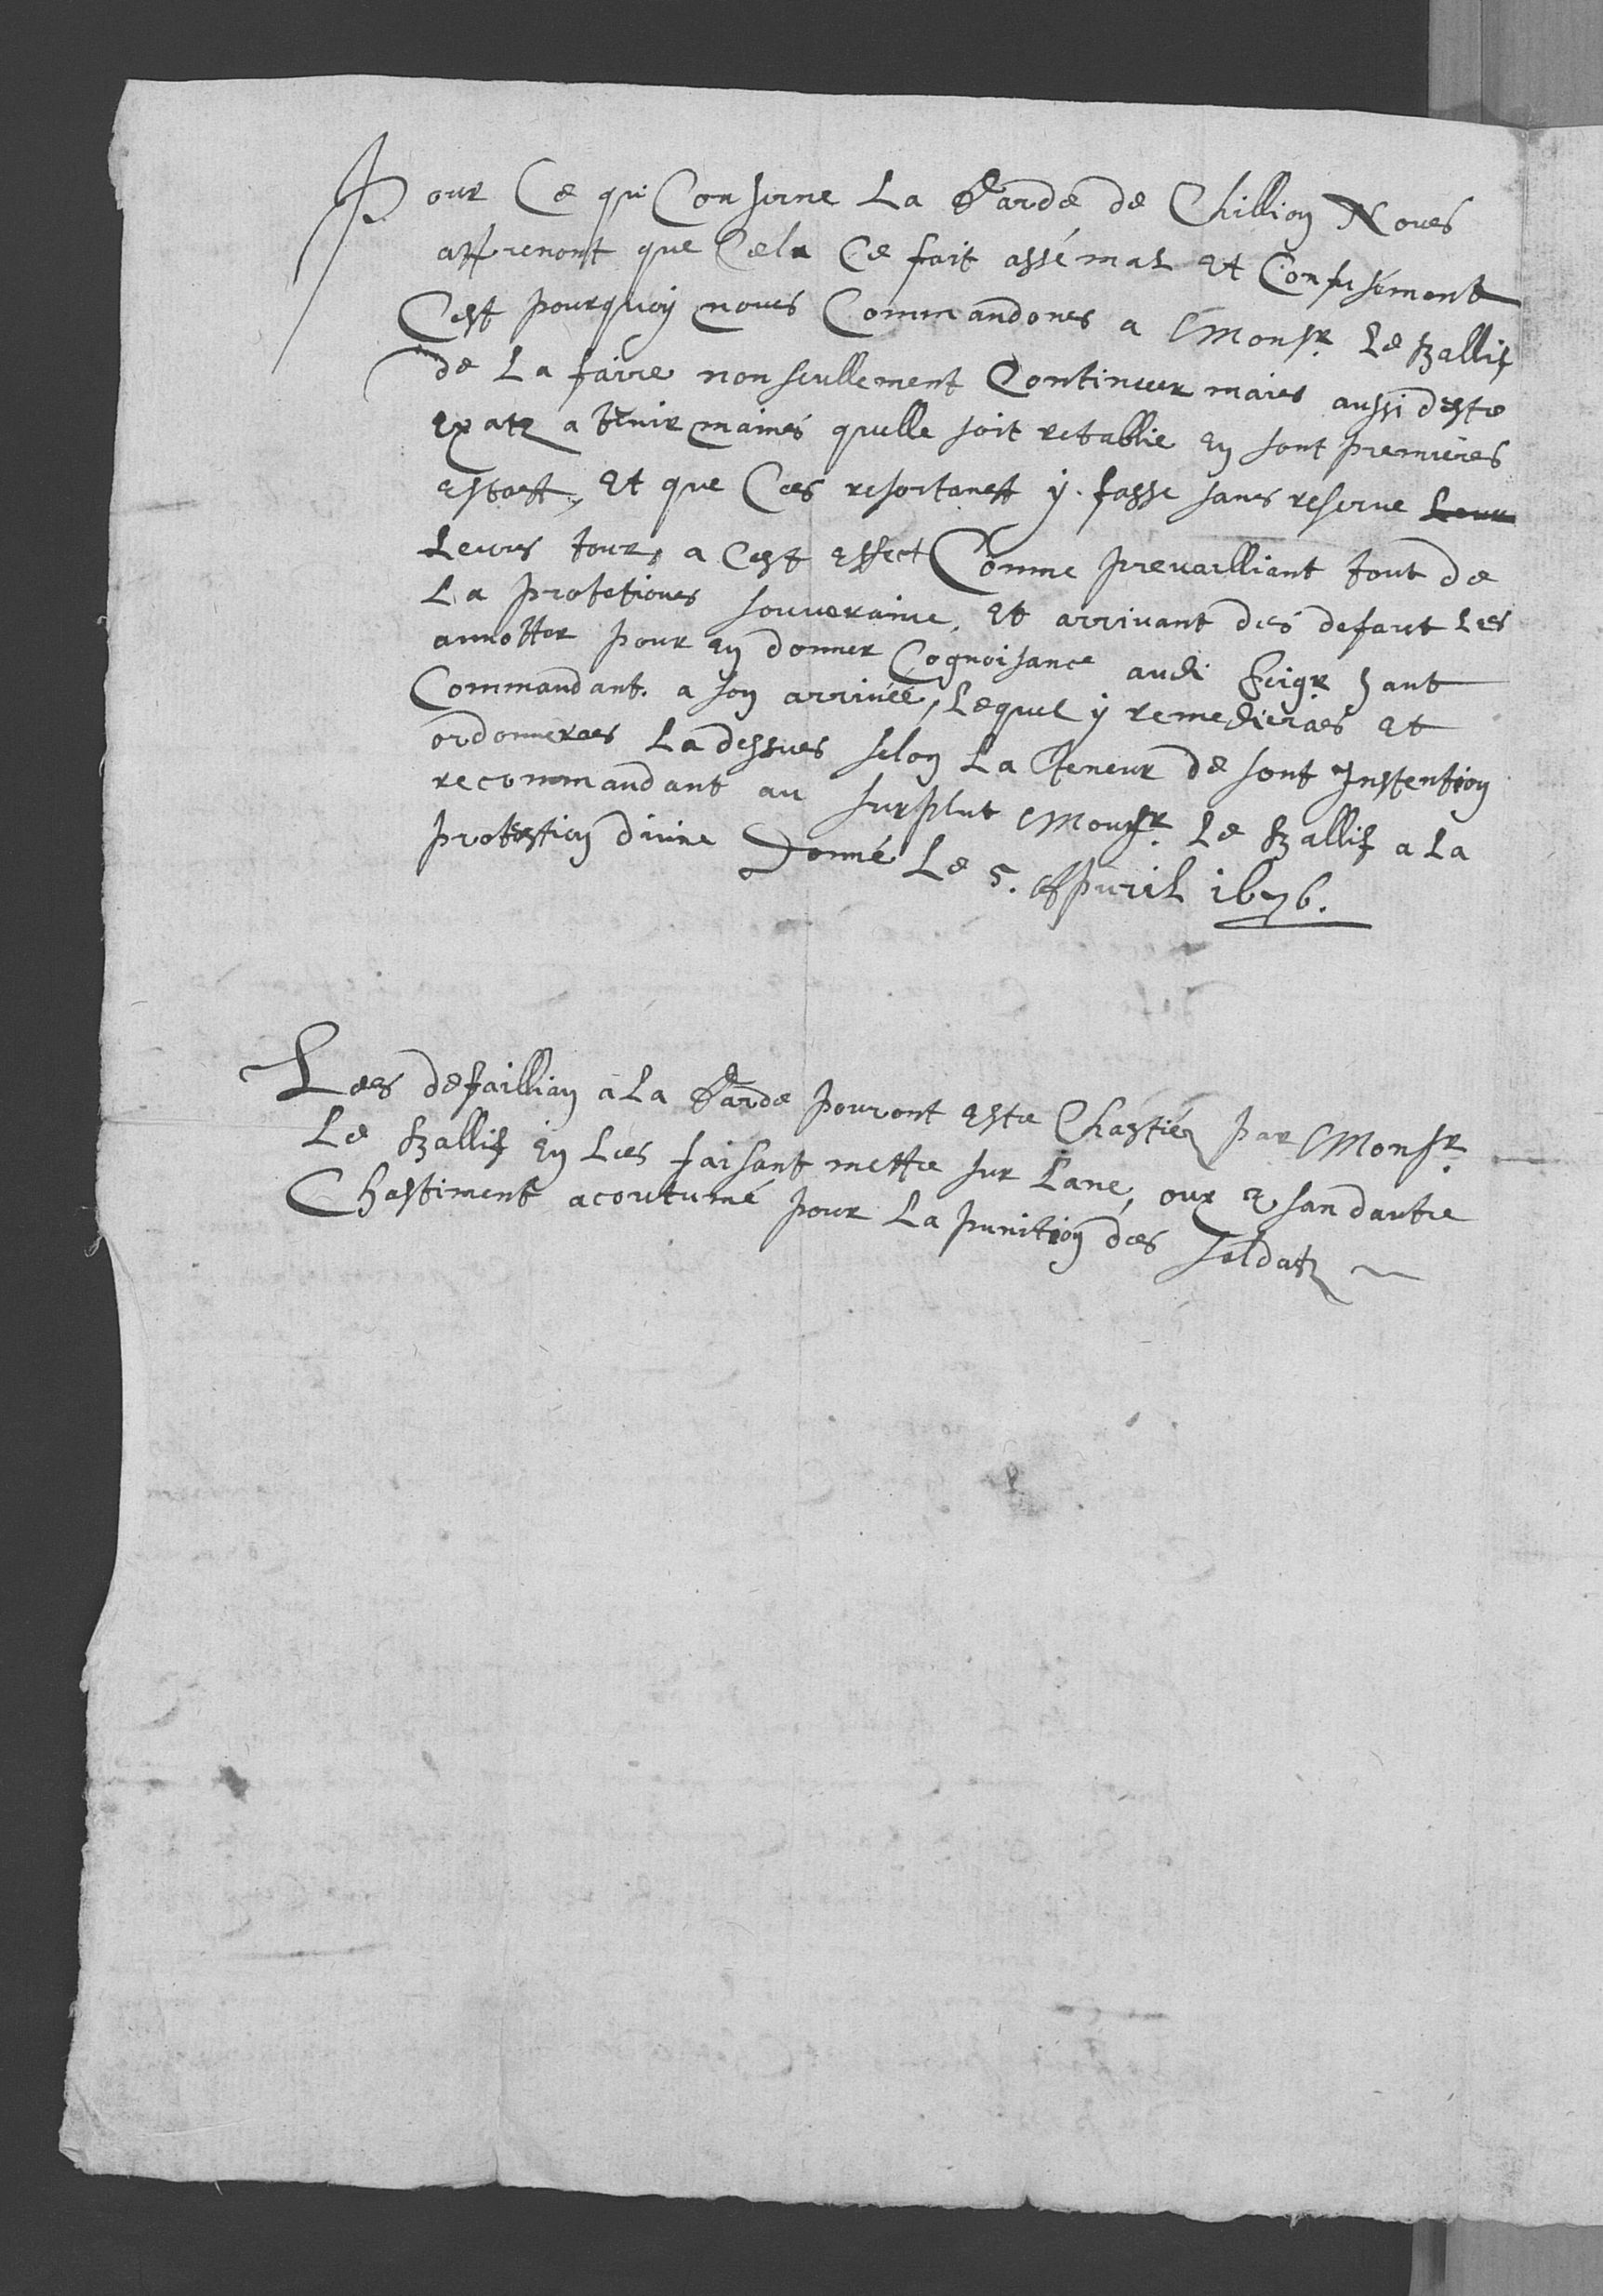 Pour Ce qui Conserne La Garde de Chillion Nous
apprenont que Cela Ce fait assé mal Et Confusément
Cest pourquoy nous Commandons a Monsr. Le Ballif
de La faire non seullement Continuer mais aussi deste
Exatz a tenir mains quelle soit retablie en sont premieres
estatt, Et que Ces resortanst y. fasse sans reserve Leur
Leurs tour, a Cest effect Comme prevailliant tout de
La protetions souveraine, Et arrivant des defaut Les
annotter pour en donner Cognoisance audi Seigr haut
Commandant. a son arrivée, Lequel y remedieras Et
ordonneras Ladessus selon La Teneur de sont Instention
recommandant au surplut Monsr. Le Ballif a La
protestion divine Donné Le 5. Apvril 1676.
Les defaillian a La Garde pouront estre Chastiéz par Monsr.
Le Ballif En Les faisant mettre sur Lane, our san dautre
Chastiment acoutumé pour La punition des soldatz